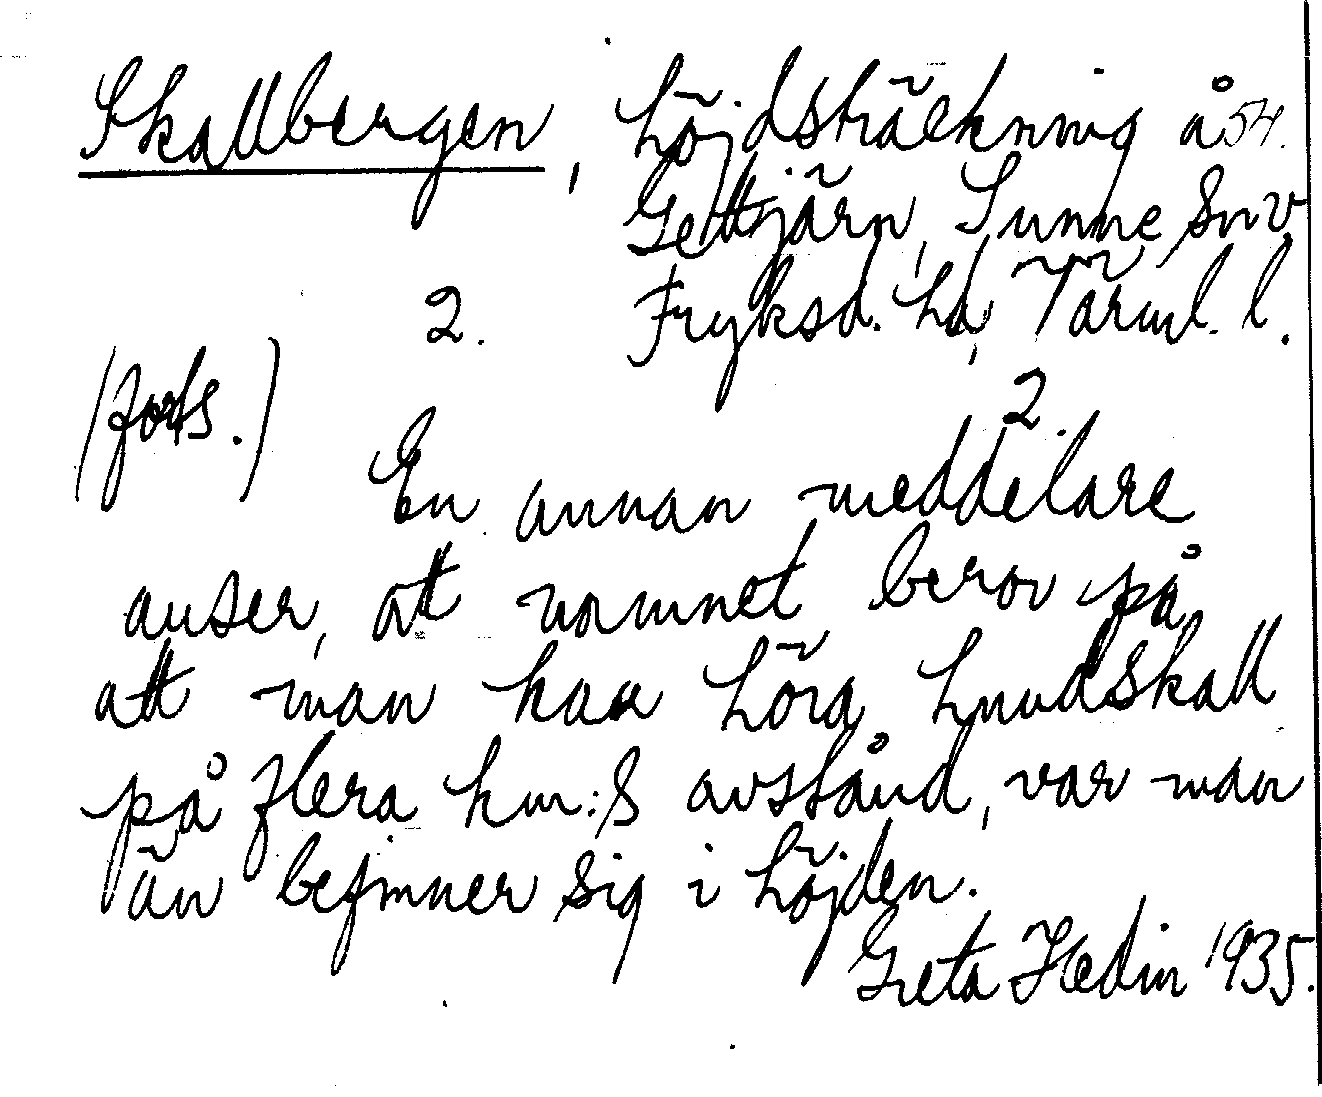 Skallbergen, höjdsträckning å 54.
Gettjärn, Sunne sn v
2. Fryksd. hd, Värml. l.
(forts.) 2.
En annan meddelare
anser, att namnet beror på
att man kan höra hundskall
på flera km:s avstånd, var man
än befinner sig i höjden.
Greta Hedin 1935.